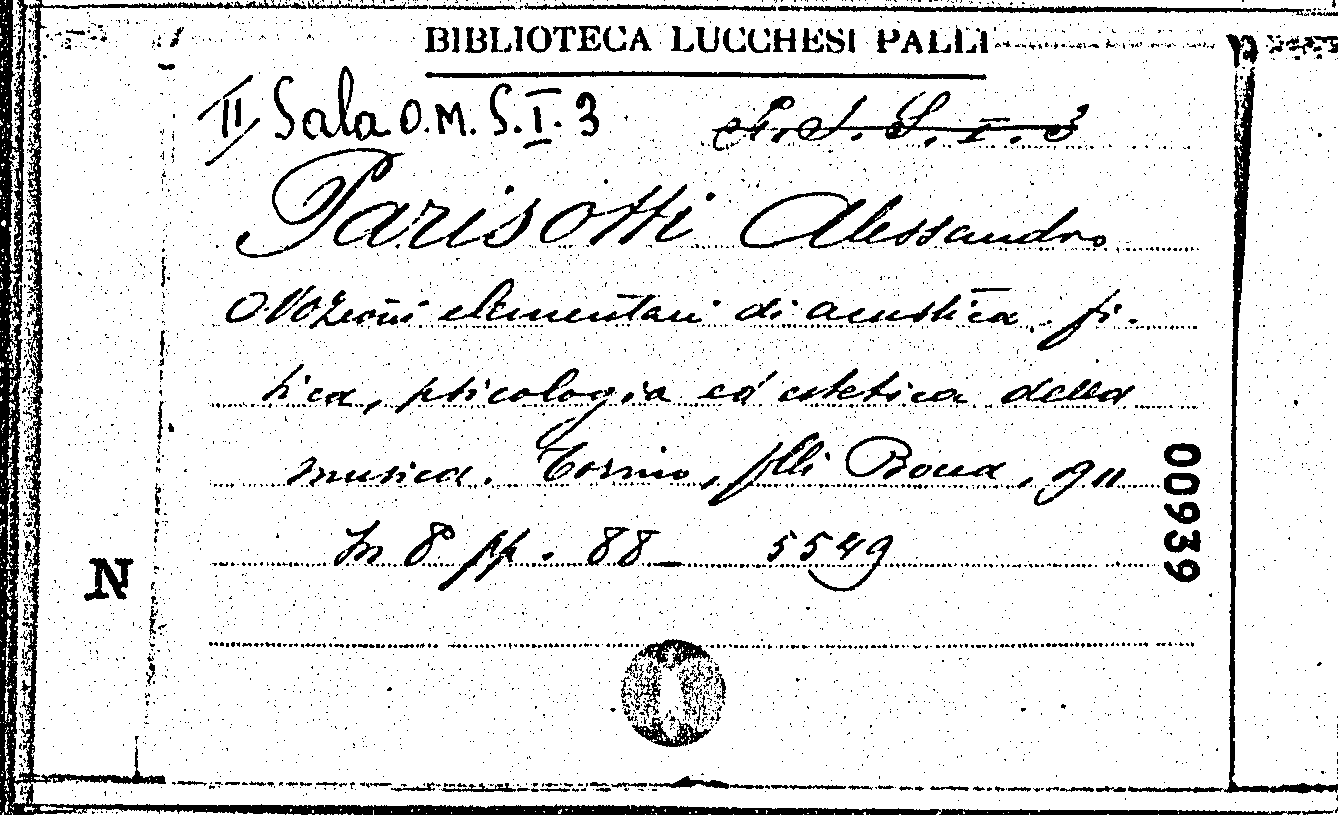 BIBLIOTECA LUCCHESI PALLI
II Sala O.M. S.I.3 S. I. 3
Parisotti Alessandro
Nozioni elementari di acustica, fi-
sica, psicologia ed estetica della
musica. Torino, flli Bocca, 911
In 8 pp. 88 5549
00939
N